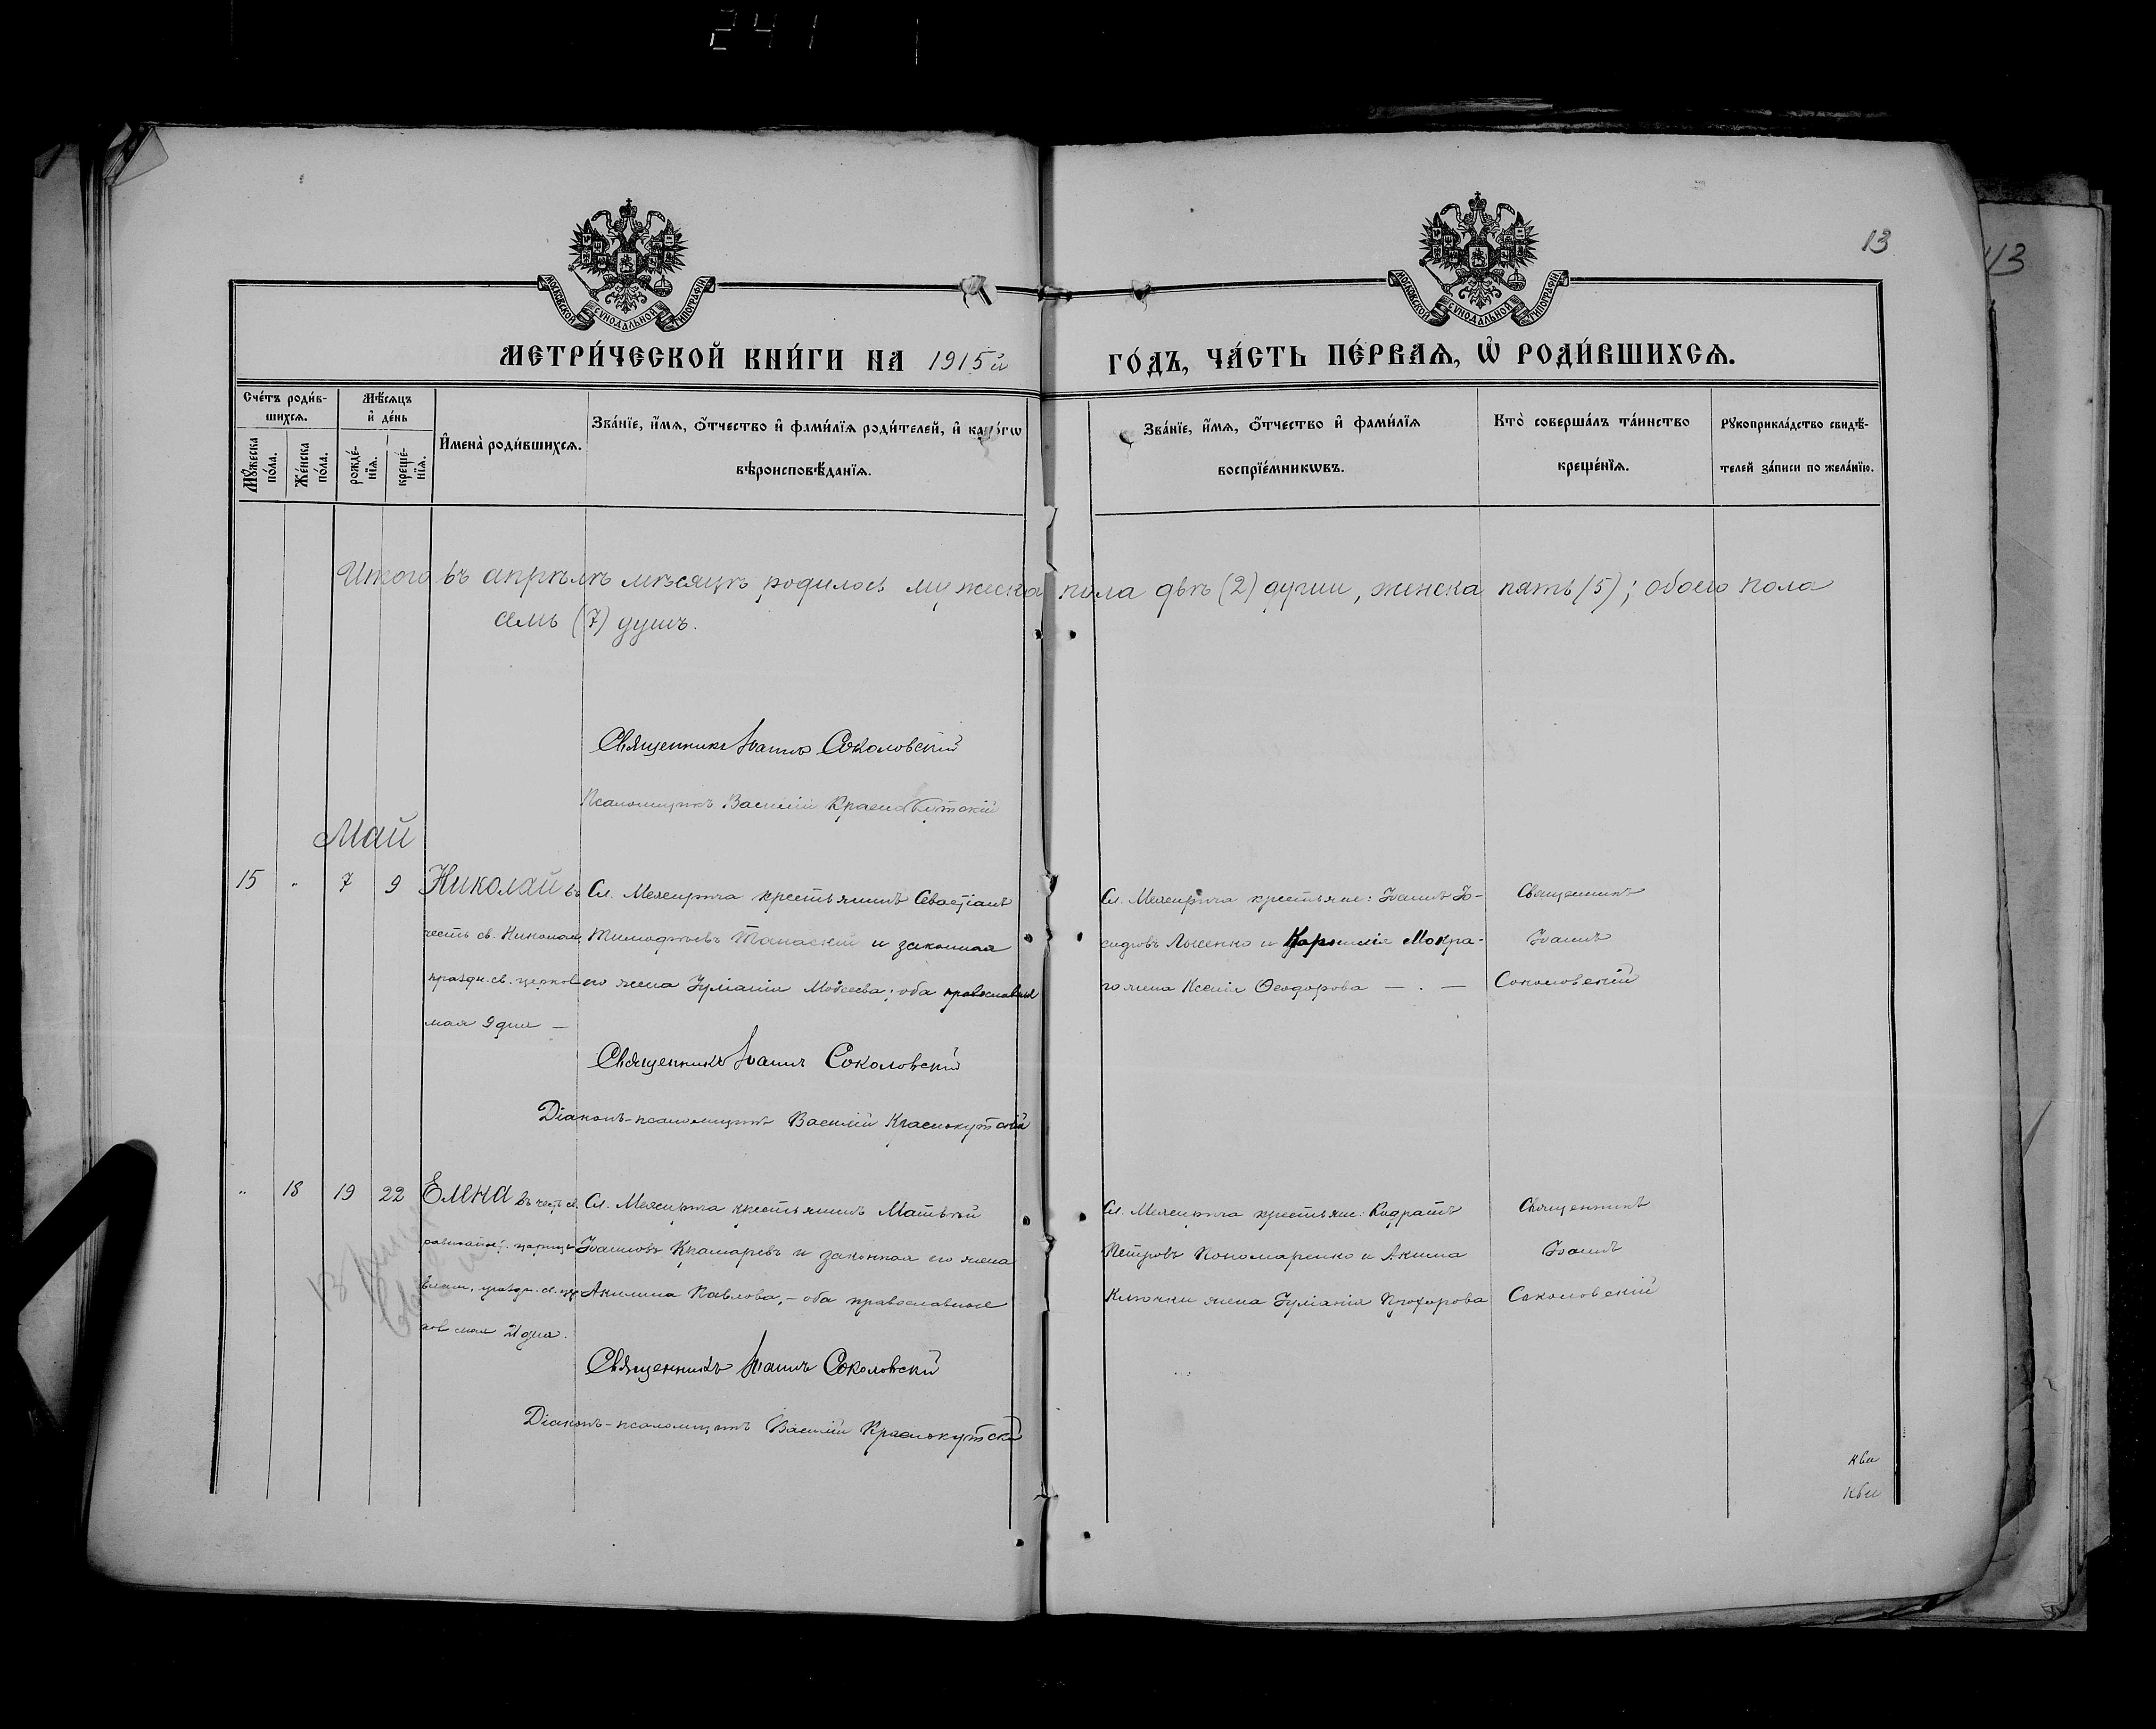 241
13
43
МОСКОВСКОЙ СѴНОДАЛЬНОЙ ТИПОГРАФІИ
МОСКОВСКОЙ СѴНОДАЛЬНОЙ ТИПОГРАФІИ
МЕТРИ́ЧЕСКОЙ КНИ́ГИ НА 1915й ГО́ДЪ, ЧА́СТЬ ПЕ́РВАѦ, Ѡ РОДИ́ВШИХСѦ.
Сче́тъ роди́в-
шихсѧ.
Мꙋ́жеска по́ла.
Же́нска по́ла.
Мѣ́сѧцъ
и҆ де́нь
рожде́-
нїѧ.
креще́-
нїѧ.
И҆мена̀ роди́вшихсѧ.
Зва́нїе, и҆́мѧ, ѻ҆́тчество и҆ фами́лїѧ роди́телей, и҆ како́гѡ
вѣроисповѣ́данїѧ.
Зва́нїе, и҆́мѧ, ѻ҆́тчество и҆ фами́лїѧ
воспрїе́мникѡвъ.
Кто̀ соверша́лъ та́инство
креще́нїѧ.
Рꙋкоприкла́дство свидѣ́-
телей за́писи по жела́нїю.
Итого въ апрѣлѣ мѣсяцѣ родилось мужеска пола двѣ (2) души, женска пять (5); обоего пола
семь (7) душъ.
Священникъ Іоаннъ Соколовскій
Псаломщикъ Василій Краснокутскій
Май
15 " 7 9 Николай въ
честь св. Николая,
праздн. св. церков.
мая 9 дня —
Сл. Межирича крестьянинъ Севастіанъ
Тимофѣевъ Танаскій и законная
его жена Іуліанія Мойсеева; оба православные
Сл. Межирича крестьяне: Іоаннъ Іо-
сифовъ Лысенко и Корнилія Мокра-
го жена Ксенія Ѳеодорова — . —
Священникъ
Іоаннъ
Соколовскій
Священникъ Іоаннъ Соколовскій
Діаконъ-псаломщикъ Василій Краснокутскій
" 18 19 22 Елена въ честь св.
равноапост. царицы
Елены, праздн. св. цер
ков мая 21 дня.
Сл. Межирича крестьянинъ Матвѣй
Іоанновъ Крамаревъ и законная его жена
Акилина Павлова, – оба православные
Сл. Межирича крестьяне: Кодратъ
Петровъ Пономаренко и Акима
Клочки жена Іуліанія Прохорова
Священникъ
Іоаннъ
Соколовскій
Священникъ Іоаннъ Соколовскій
Діаконъ-псаломщикъ Василій Краснокутскій